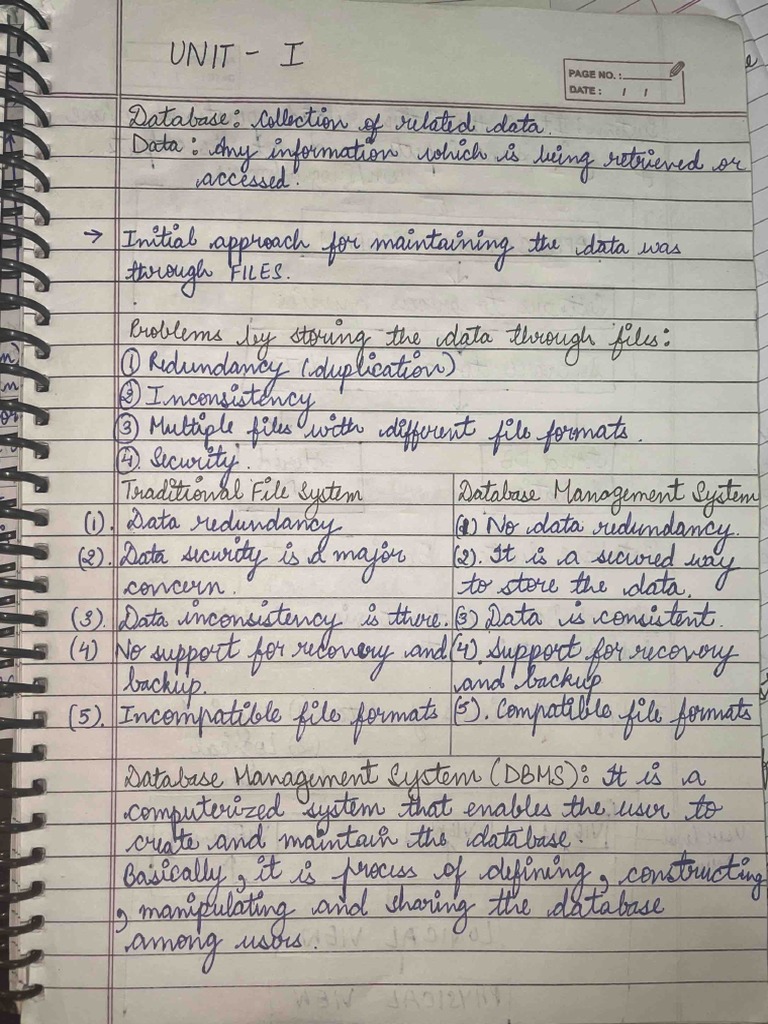 UNIT - I
PAGE NO. :
DATE : / /
Database: Collection of related data.
Data : Any information which is being retrieved or
accessed.
→ Initial approach for maintaining the data was
through FILES.
Problems by storing the data through files:
① Redundancy (duplication)
② Inconsistency
③ Multiple files with different file formats.
④ Security.
Traditional File System | Database Management System
(1). Data redundancy | (1) No data redundancy.
(2). Data security is a major | (2). It is a secured way
concern. | to store the data.
(3). Data inconsistency is there. | (3) Data is consistent.
(4) No support for recovery and | (4). Support for recovery
backup. | and backup
(5). Incompatible file formats | (5). Compatible file formats
Database Management System (DBMS): It is a
computerized system that enables the user to
create and maintain the database.
Basically, it is process of defining, constructing
, manipulating and sharing the database
among users.